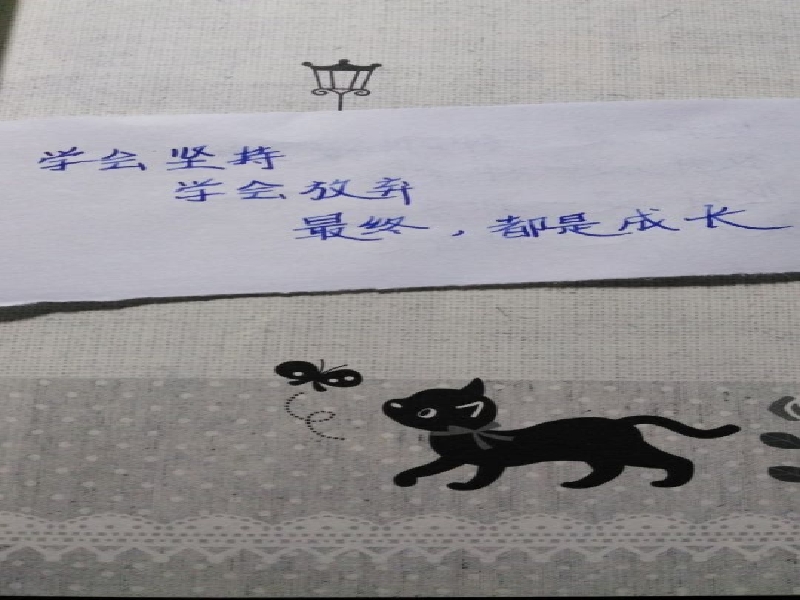 学会坚持
学会放弃
最终，都是成长